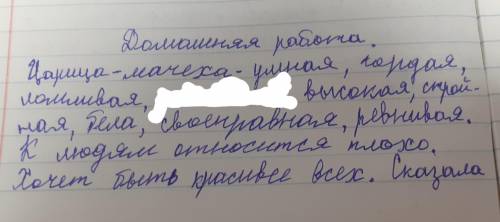 Домашняя работа.
Царица-мачеха-умная, гордая,
ломливая, высокая, строй-
ная, бела, своенравная, ревнивая.
К людям относится плохо.
Хочет быть красивее всех. Сказала